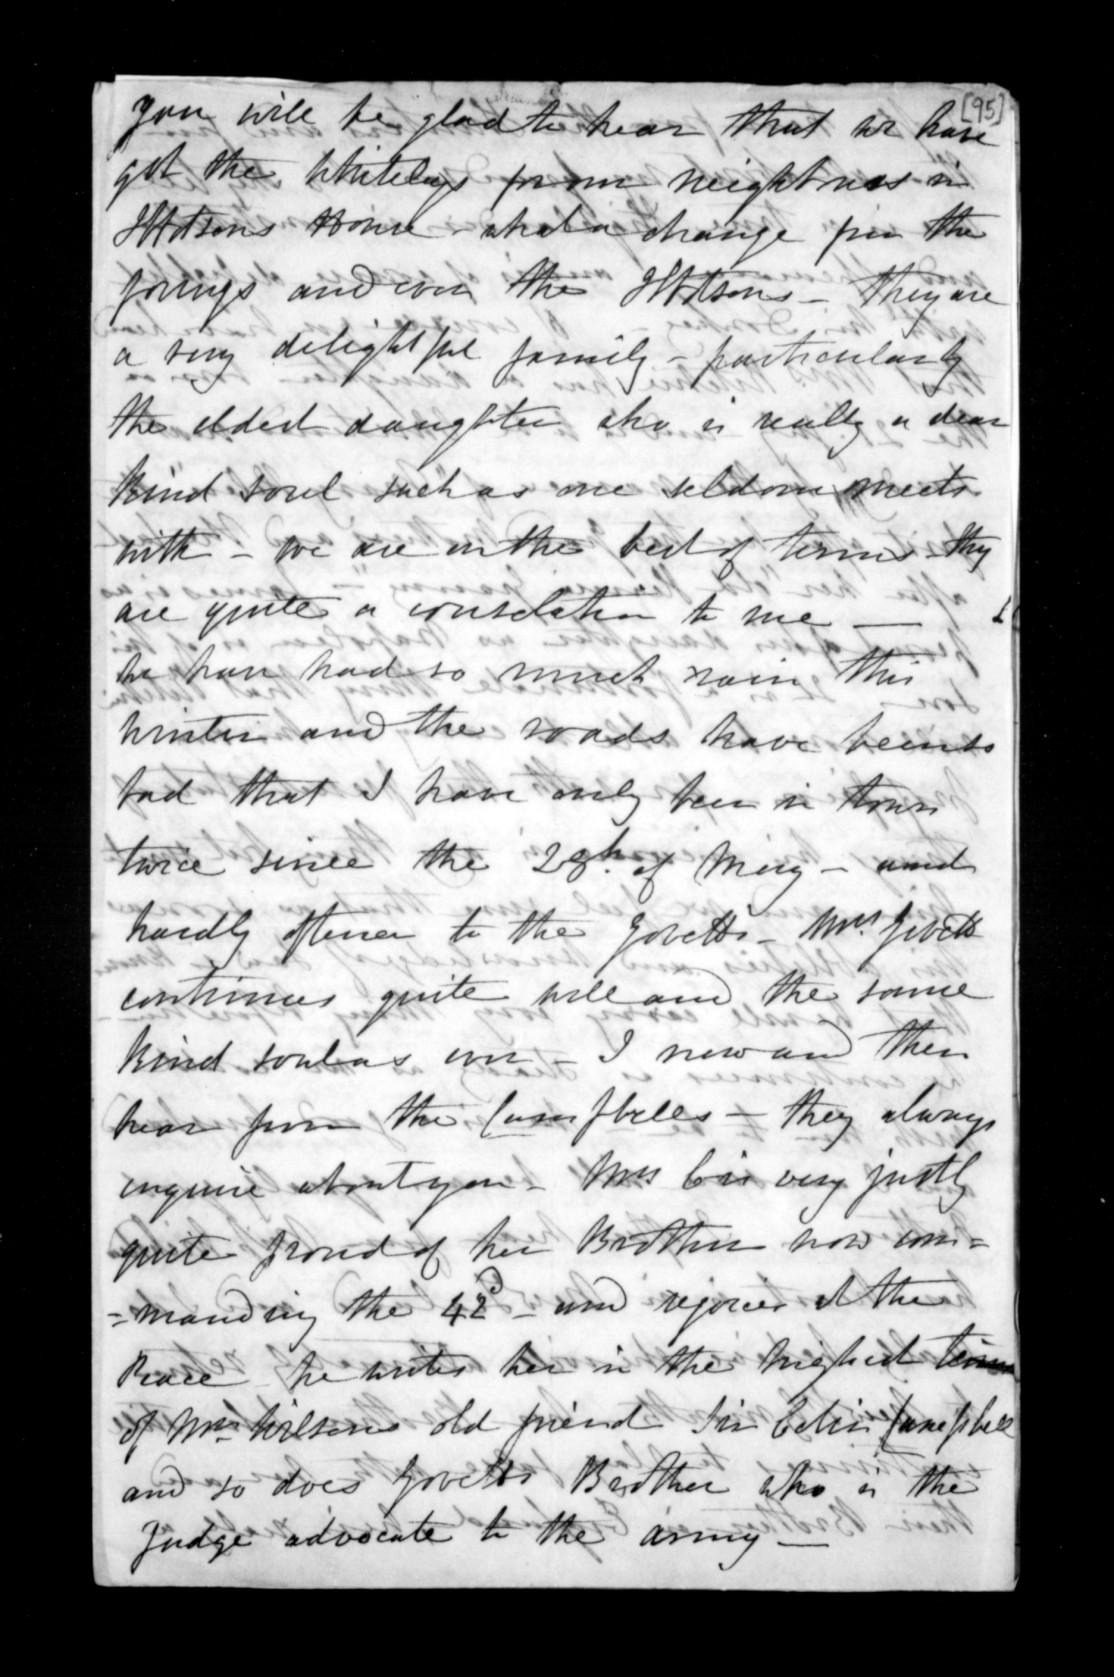 [95]
You will be glad to hear that we have
got the Whitelaws for our neighbours in
Hutsons House - what a change from the
youngs and even the Hutsons - they are
a very delightful family - particularly
the eldest daughter who is really a dear
kind soul such as one seldom meets
with - we are on the best of terms - they
are quite a consolation to me —
We have had so much rain this
winter and the roads have been so
bad that I have only been in town
twice since the 28th of May - and
hardly oftener to the Govetts - Mrs Govett
continues quite well and the same
kind soul as ever - I now and then
hear from the Campbells - they always
inquire about you - Mrs C is very justly
quite proud of her Brother now com=
=manding the 42d - and rejoices at the
Peace he writes her in the highest terms
of Mrs Wilsons old friend Sir Colin Campbell
and so does Govetts Brother who is the
Judge advocate to the army —